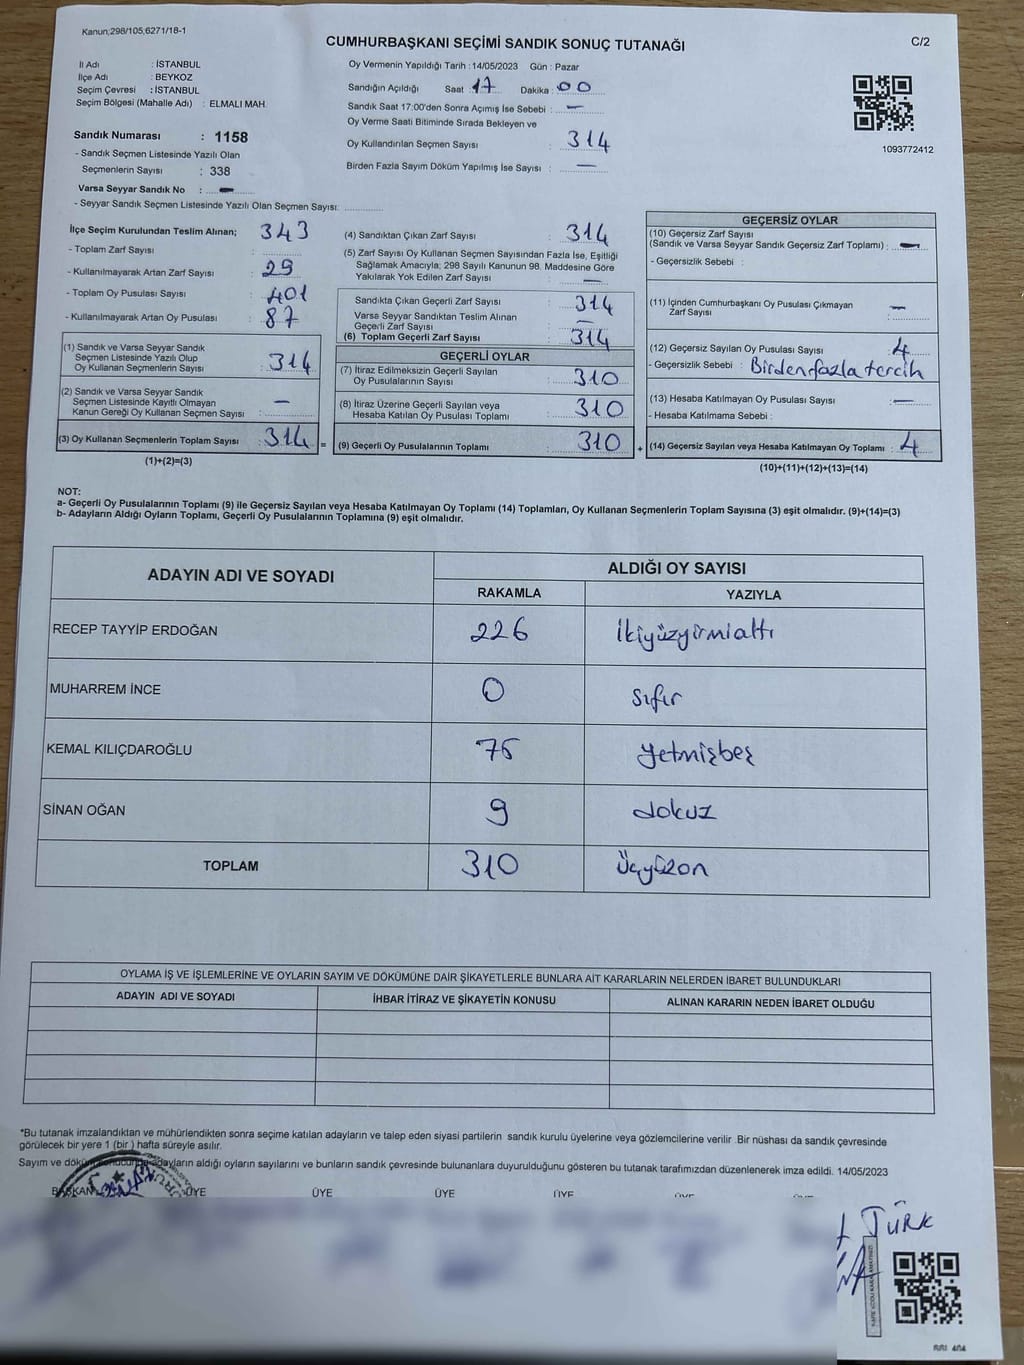 Kanun;298/105,6271/18-1
CUMHURBAŞKANI SEÇİMİ SANDIK SONUÇ TUTANAĞI
C/2
İl Adı : İSTANBUL
İlçe Adı : BEYKOZ
Seçim Çevresi : İSTANBUL
Seçim Bölgesi (Mahalle Adı) : ELMALI MAH.
Sandık Numarası : 1158
- Sandık Seçmen Listesinde Yazılı Olan
Seçmenlerin Sayısı : 338
Varsa Seyyar Sandık No : -
- Seyyar Sandık Seçmen Listesinde Yazılı Olan Seçmen Sayısı:
Oy Vermenin Yapıldığı Tarih : 14/05/2023 Gün : Pazar
Sandığın Açıldığı Saat 17 Dakika : 00
Sandık Saat 17:00'den Sonra Açımış İse Sebebi : -
Oy Verme Saati Bitiminde Sırada Bekleyen ve
Oy Kullandırılan Seçmen Sayısı : 314
Birden Fazla Sayım Döküm Yapılmış İse Sayısı : -
1093772412
İlçe Seçim Kurulundan Teslim Alınan; 343
- Toplam Zarf Sayısı :
- Kullanılmayarak Artan Zarf Sayısı : 29
- Toplam Oy Pusulası Sayısı : 401
- Kullanılmayarak Artan Oy Pusulası : 87
(1) Sandık ve Varsa Seyyar Sandık
Seçmen Listesinde Yazılı Olup
Oy Kullanan Seçmenlerin Sayısı : 314
(2) Sandık ve Varsa Seyyar Sandık
Seçmen Listesinde Kayıtlı Olmayan
Kanun Gereği Oy Kullanan Seçmen Sayısı : -
(3) Oy Kullanan Seçmenlerin Toplam Sayısı : 314 =
(1)+(2)=(3)
(4) Sandıktan Çıkan Zarf Sayısı : 314
(5) Zarf Sayısı Oy Kullanan Seçmen Sayısından Fazla İse, Eşitliği
Sağlamak Amacıyla; 298 Sayılı Kanunun 98. Maddesine Göre
Yakılarak Yok Edilen Zarf Sayısı : -
Sandıkta Çıkan Geçerli Zarf Sayısı : 314
Varsa Seyyar Sandıktan Teslim Alınan
Geçerli Zarf Sayısı : -
(6) Toplam Geçerli Zarf Sayısı : 314
GEÇERLİ OYLAR
(7) İtiraz Edilmeksizin Geçerli Sayılan
Oy Pusulalarının Sayısı : 310
(8) İtiraz Üzerine Geçerli Sayılan veya
Hesaba Katılan Oy Pusulası Toplamı : 310
(9) Geçerli Oy Pusulalarının Toplamı : 310 +
GEÇERSİZ OYLAR
(10) Geçersiz Zarf Sayısı
(Sandık ve Varsa Seyyar Sandık Geçersiz Zarf Toplamı) : -
- Geçersizlik Sebebi :
(11) İçinden Cumhurbaşkanı Oy Pusulası Çıkmayan
Zarf Sayısı : -
(12) Geçersiz Sayılan Oy Pusulası Sayısı : 4
- Geçersizlik Sebebi : Birden fazla tercih
(13) Hesaba Katılmayan Oy Pusulası Sayısı : -
- Hesaba Katılmama Sebebi :
(14) Geçersiz Sayılan veya Hesaba Katılmayan Oy Toplamı : 4
(10)+(11)+(12)+(13)=(14)
NOT:
a- Geçerli Oy Pusulalarının Toplamı (9) ile Geçersiz Sayılan veya Hesaba Katılmayan Oy Toplamı (14) Toplamları, Oy Kullanan Seçmenlerin Toplam Sayısına (3) eşit olmalıdır. (9)+(14)=(3)
b- Adayların Aldığı Oyların Toplamı, Geçerli Oy Pusulalarının Toplamına (9) eşit olmalıdır.
ADAYIN ADI VE SOYADI
ALDIĞI OY SAYISI
RAKAMLA YAZIYLA
RECEP TAYYİP ERDOĞAN 226 İkiyüzyirmialtı
MUHARREM İNCE 0 sıfır
KEMAL KILIÇDAROĞLU 75 yetmişbeş
SİNAN OĞAN 9 dokuz
TOPLAM 310 Üçyüzon
OYLAMA İŞ VE İŞLEMLERİNE VE OYLARIN SAYIM VE DÖKÜMÜNE DAİR ŞİKAYETLERLE BUNLARA AİT KARARLARIN NELERDEN İBARET BULUNDUKLARI
ADAYIN ADI VE SOYADI İHBAR İTİRAZ VE ŞİKAYETİN KONUSU ALINAN KARARIN NEDEN İBARET OLDUĞU
*Bu tutanak imzalandıktan ve mühürlendikten sonra seçime katılan adayların ve talep eden siyasi partilerin sandık kurulu üyelerine veya gözlemcilerine verilir .Bir nüshası da sandık çevresinde
görülecek bir yere 1 (bir ) hafta süreyle asılır.
Sayım ve döküm sonucunda adayların aldığı oyların sayılarını ve bunların sandık çevresinde bulunanlara duyurulduğunu gösteren bu tutanak tarafımızdan düzenlenerek imza edildi. 14/05/2023
BAŞKAN ÜYE ÜYE ÜYE ÜYE ÜYE
TÜRK